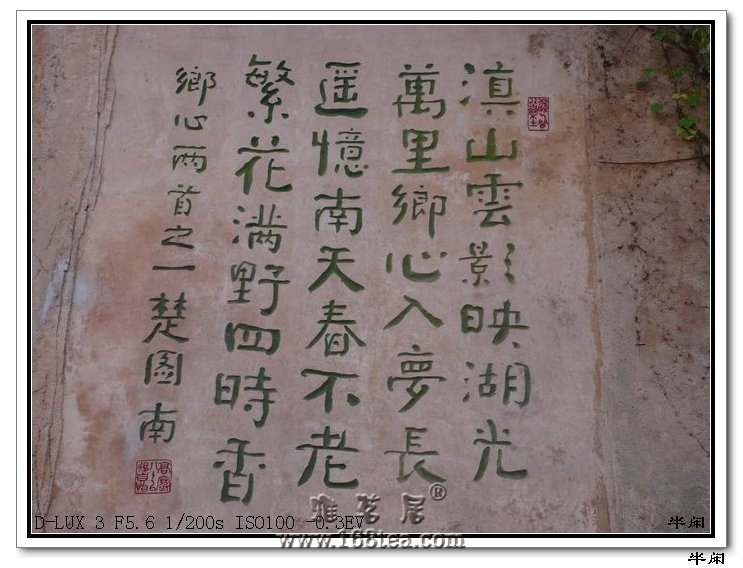 滇山雲影映湖光
萬里鄉心入夢長
遥憶南天春不老
繁花满野四時香
鄉心两首之一楚图南
雅茗居®
www.168tea.com
D-LUX 3 F5.6 1/200s ISO100 -0.3EV
半闲
半闲